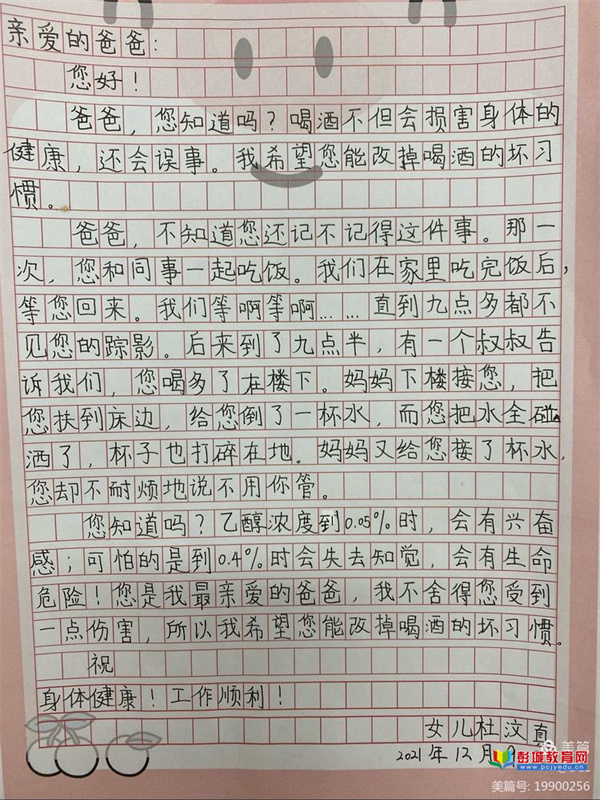 亲爱的爸爸：
您好！
爸爸，您知道吗？喝酒不但会损害身体的
健康，还会误事。我希望您能改掉喝酒的坏习
惯。
爸爸，不知道您还记不记得这件事。那一
次，您和同事一起吃饭。我们在家里吃完饭后，
等您回来。我们等啊等啊……直到九点多都不
见您的踪影。后来到了九点半，有一个叔叔告
诉我们，您喝多了在楼下。妈妈下楼接您，把
您扶到床边，给您倒了一杯水，而您把水全碰
洒了，杯子也打碎在地。妈妈又给您接了杯水，
您却不耐烦地说不用你管。
您知道吗？乙醇浓度到0.05%时，会有兴奋
感；可怕的是到0.4%时会失去知觉，会有生命
危险！您是我最亲爱的爸爸，我不舍得您受到
一点伤害，所以我希望您能改掉喝酒的坏习惯。
祝
身体健康！工作顺利！
女儿杜汶直
2021年12月
美篇
彭城教育网
www.pcjyedu.com
美篇号：19900256